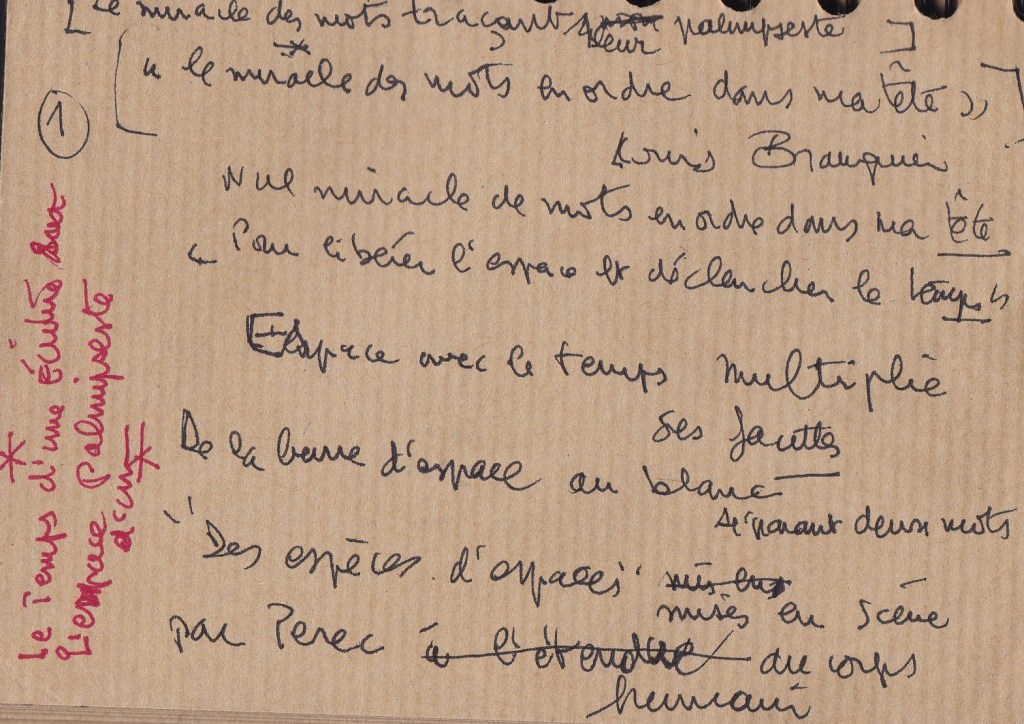 [ Le miracle des mots traçant leur palimpseste ]
[ " le miracle des mots en ordre dans ma tête "]
1
Nul miracle de mots en ordre dans ma tête
" Pour libérer l'espace et déclencher le temps "
Espace avec le temps multiplie
ses facettes
De la barre d'espace au blanc
séparant deux mots
" Des espèces d'espaces " mis en
mises en scène
par Perec à l'étendue du corps
humain
Le Temps d'une écriture sur
l'espace Palimpseste
d'un